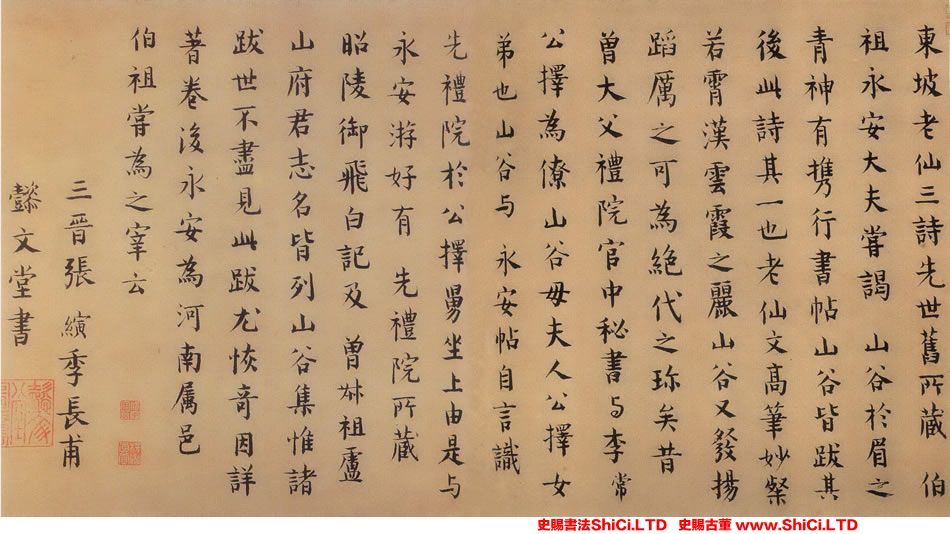 東坡老仙三詩先世舊所藏 伯
祖永安大夫嘗謁 山谷於眉之
青神有携行書帖山谷皆跋其
後此詩其一也老仙文高筆妙粲
若霄漢雲霞之麗山谷又發揚
蹈厲之可為絶代之珎矣昔
曾大父禮院官中秘書与李常
公擇為僚山谷母夫人公擇女
弟也山谷与 永安帖自言識
先禮院於公擇舅坐上由是与
永安游好有 先禮院所藏
昭陵御飛白記及 曾叔祖盧
山府君志名皆列山谷集惟諸
跋世不盡見此跋尤恢奇因詳
著卷後永安為河南属邑
伯祖嘗為之宰云
三晋張縯季長甫
懿文堂書
史賜書法ShiCi.LTD 史賜古董 www.ShiCi.LTD